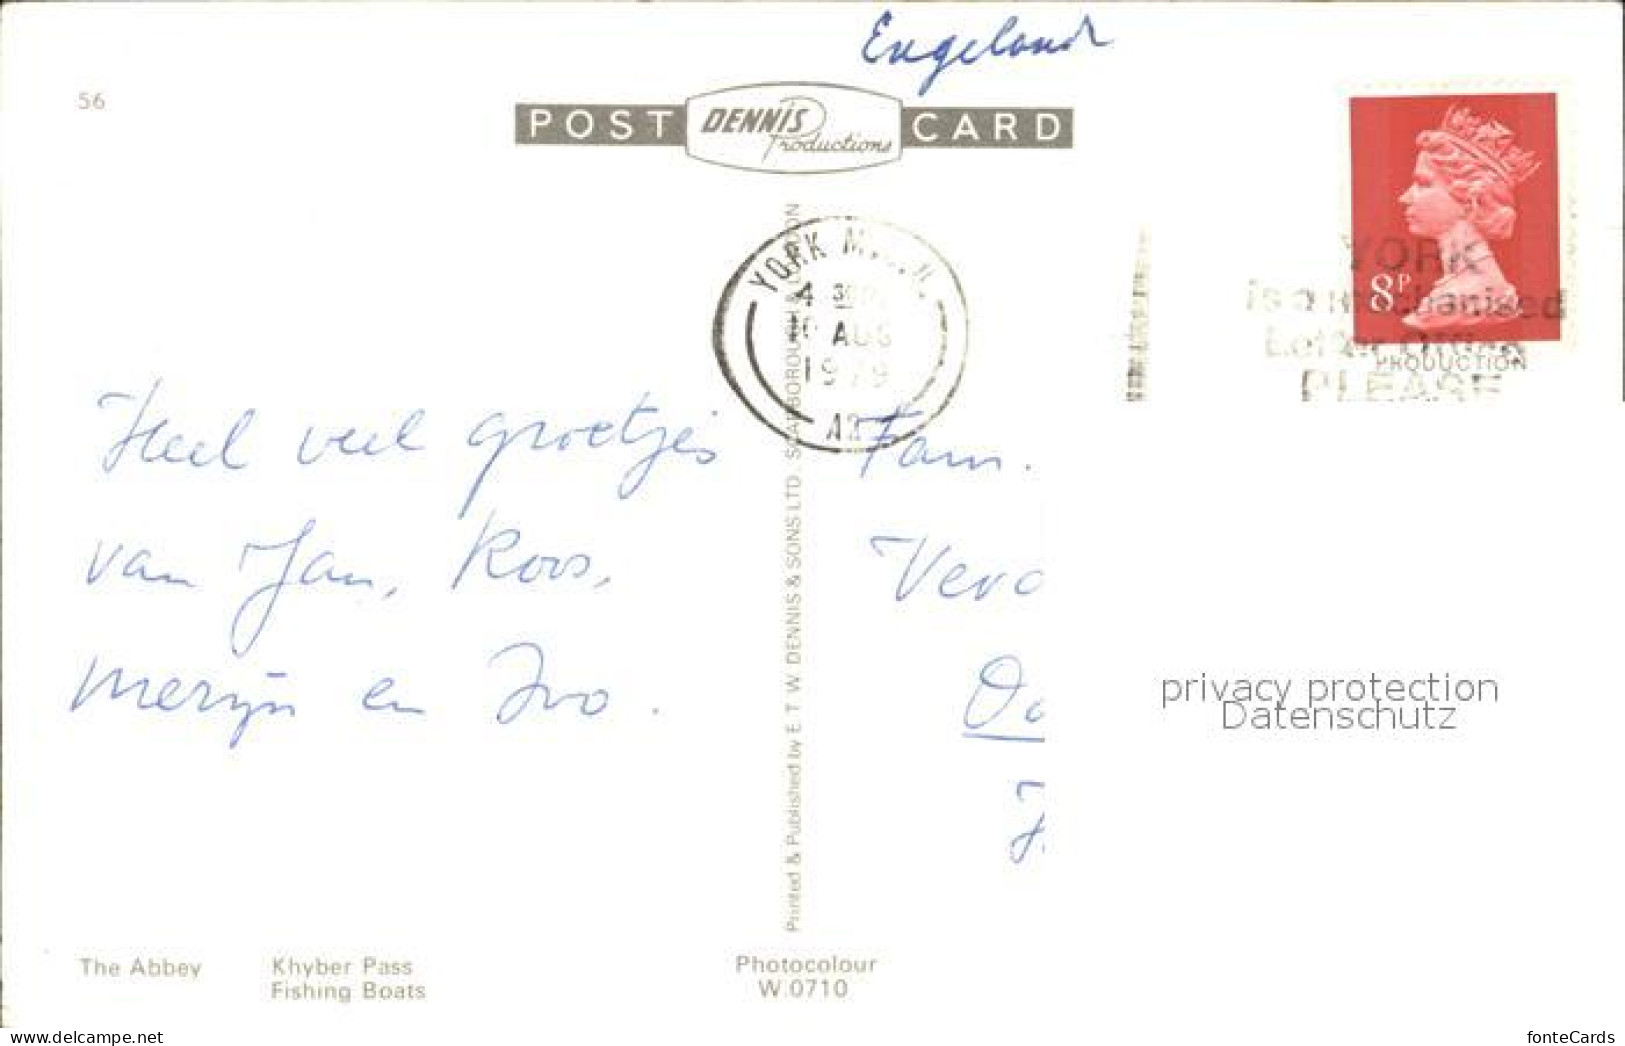 Engeland
56
POST DENNIS Productions CARD
YORK
4 30
AUG
1979
YORK
is a mechanised
Letter Office
PLEASE
8P
PRODUCTION
Heel veel groetjes
van Jan, Koos,
Merijn en Ivo.
Fam.
Printed & Published by E. T. W. DENNIS & SONS LTD. SCARBOROUGH & LONDON
privacy protection
Datenschutz
The Abbey
Khyber Pass
Fishing Boats
Photocolour
W.0710
www.delcampe.net
fonteCards